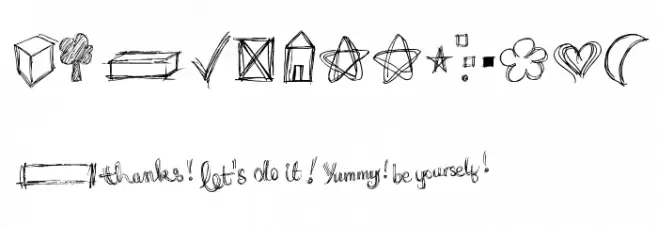 thanks! let's do it! Yummy! be yourself!